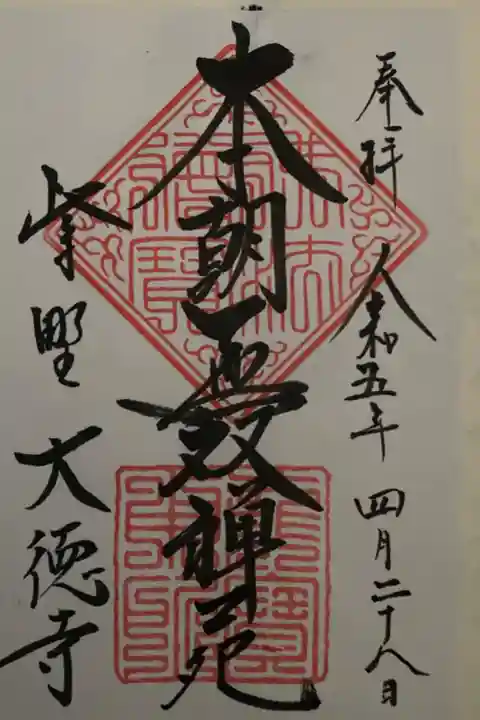 奉拝 令和五年 四月二十八日
本朝無双禅苑
紫野 大徳寺